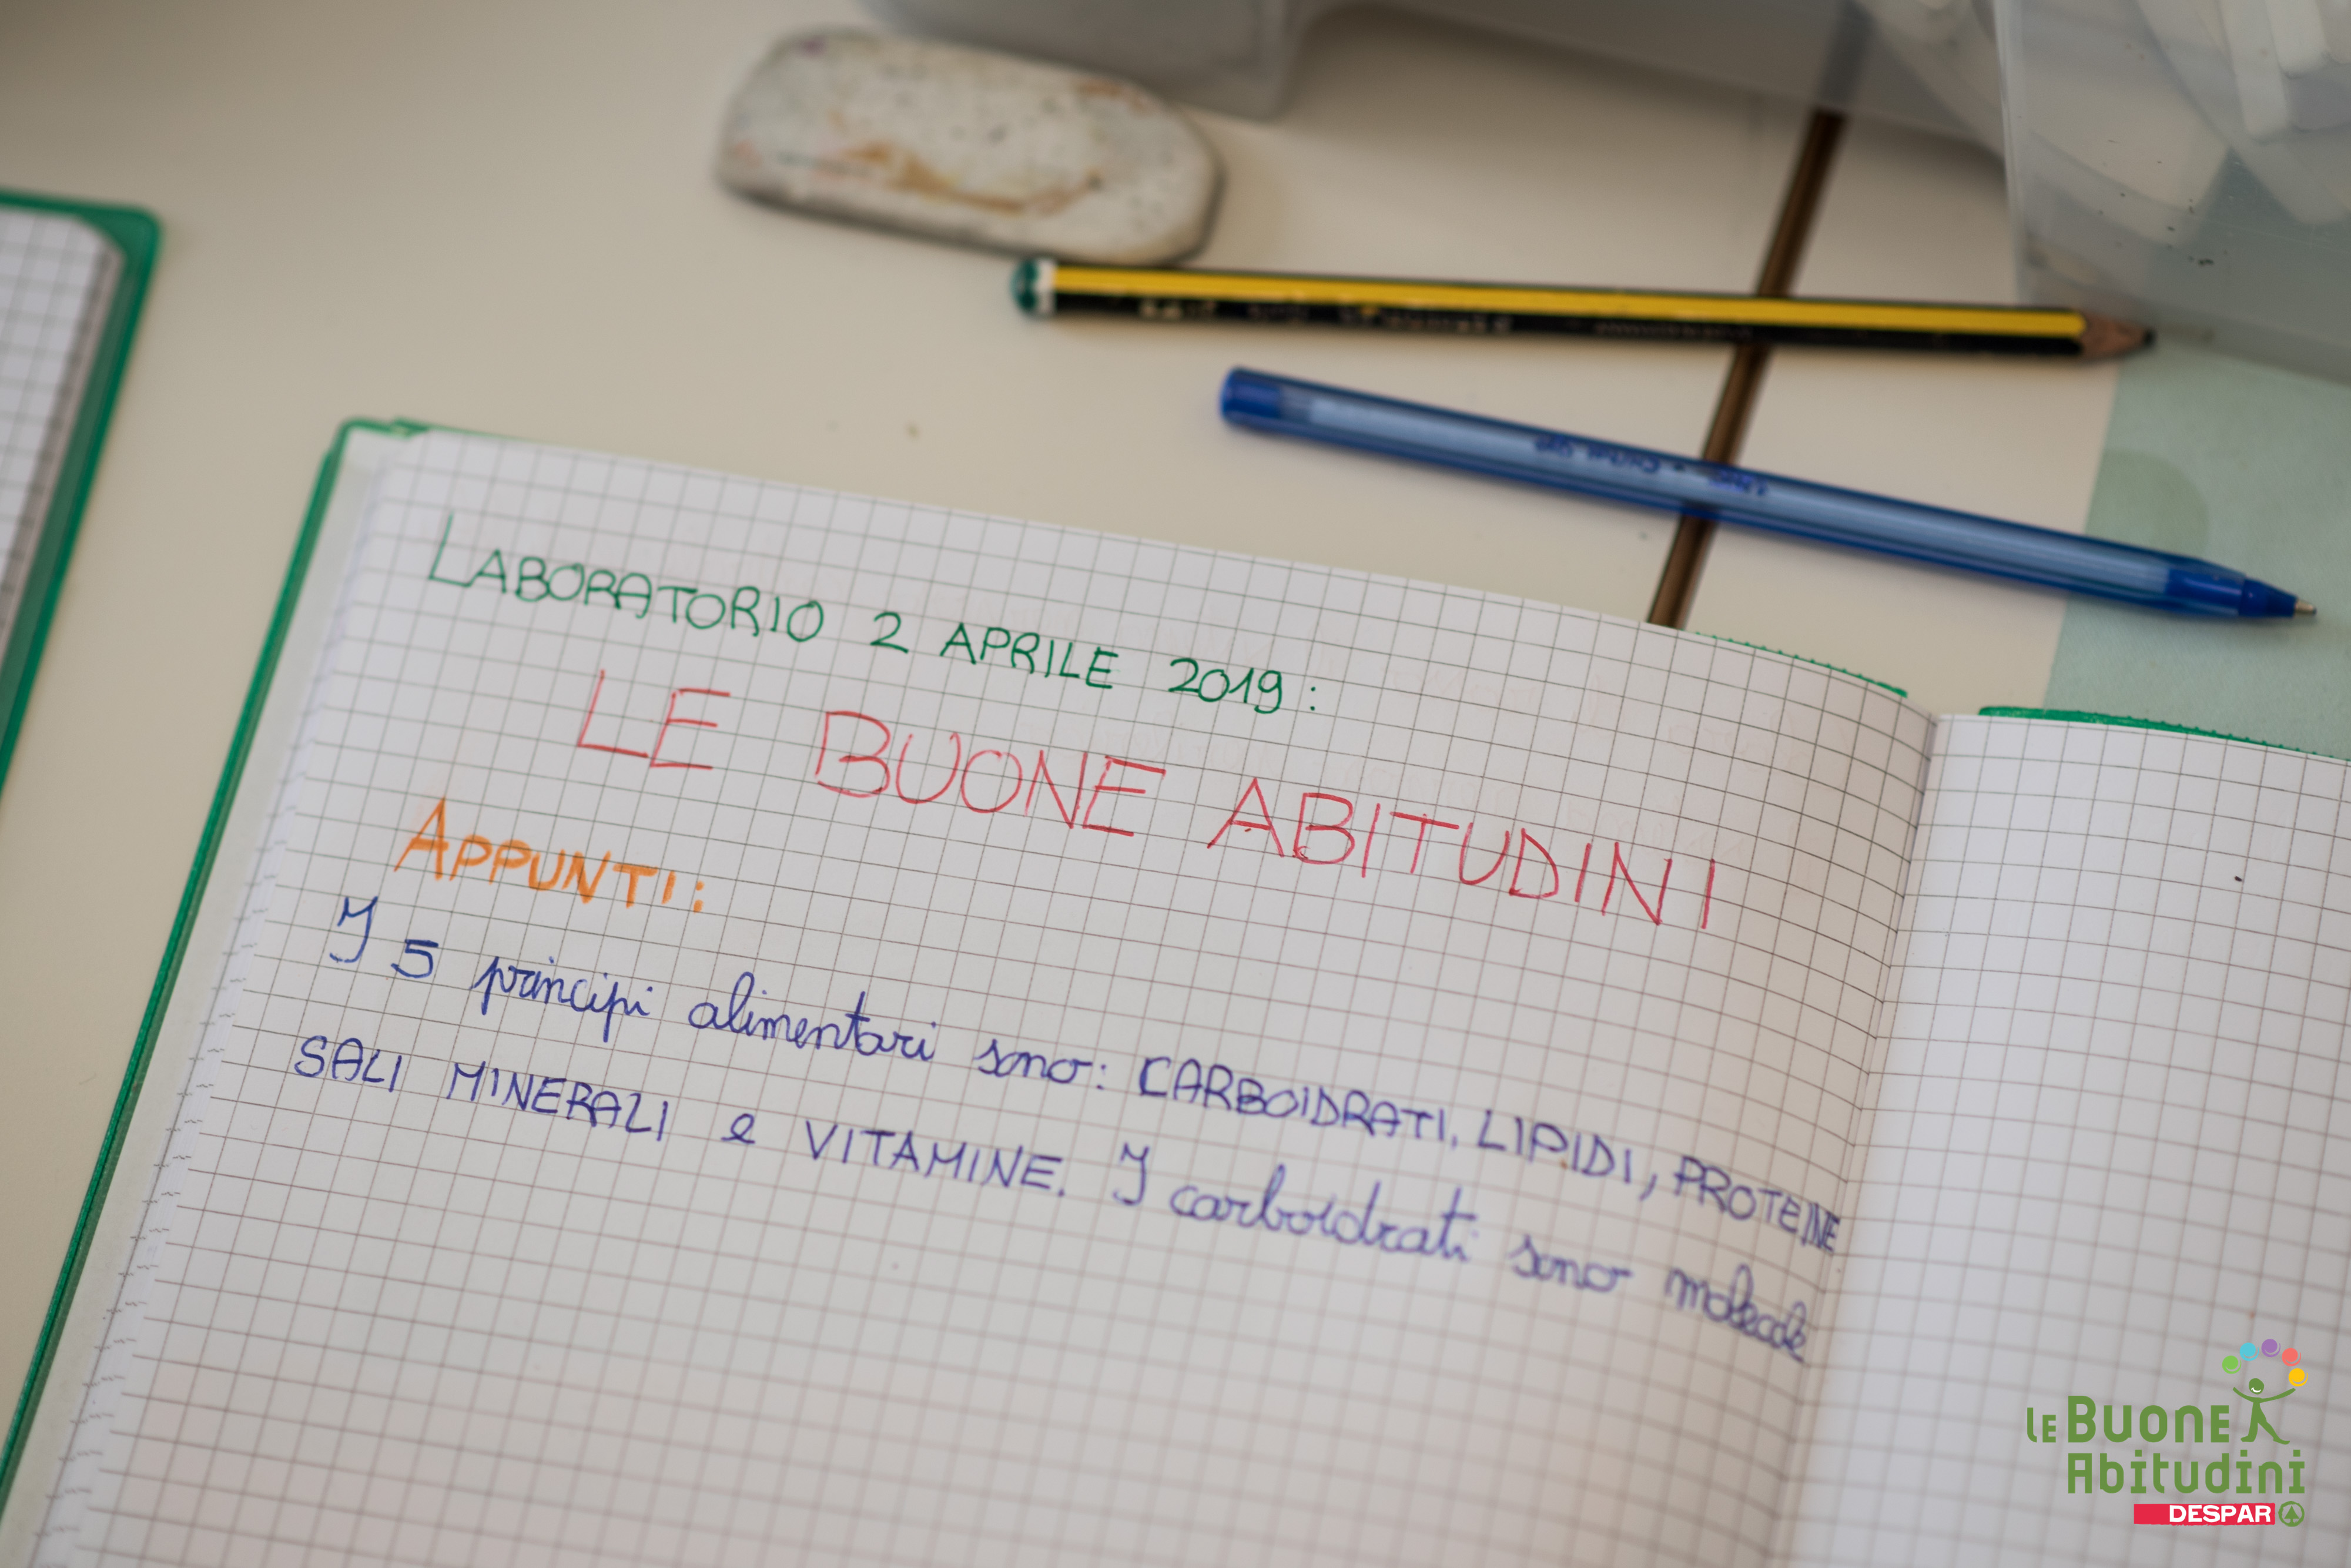 LABORATORIO 2 APRILE 2019:
LE BUONE ABITUDINI
APPUNTI:
I 5 principi alimentari sono: CARBOIDRATI, LIPIDI, PROTEINE
SALI MINERALI e VITAMINE. I carboidrati sono molecole
LE BUONE
Abitudini
DESPAR